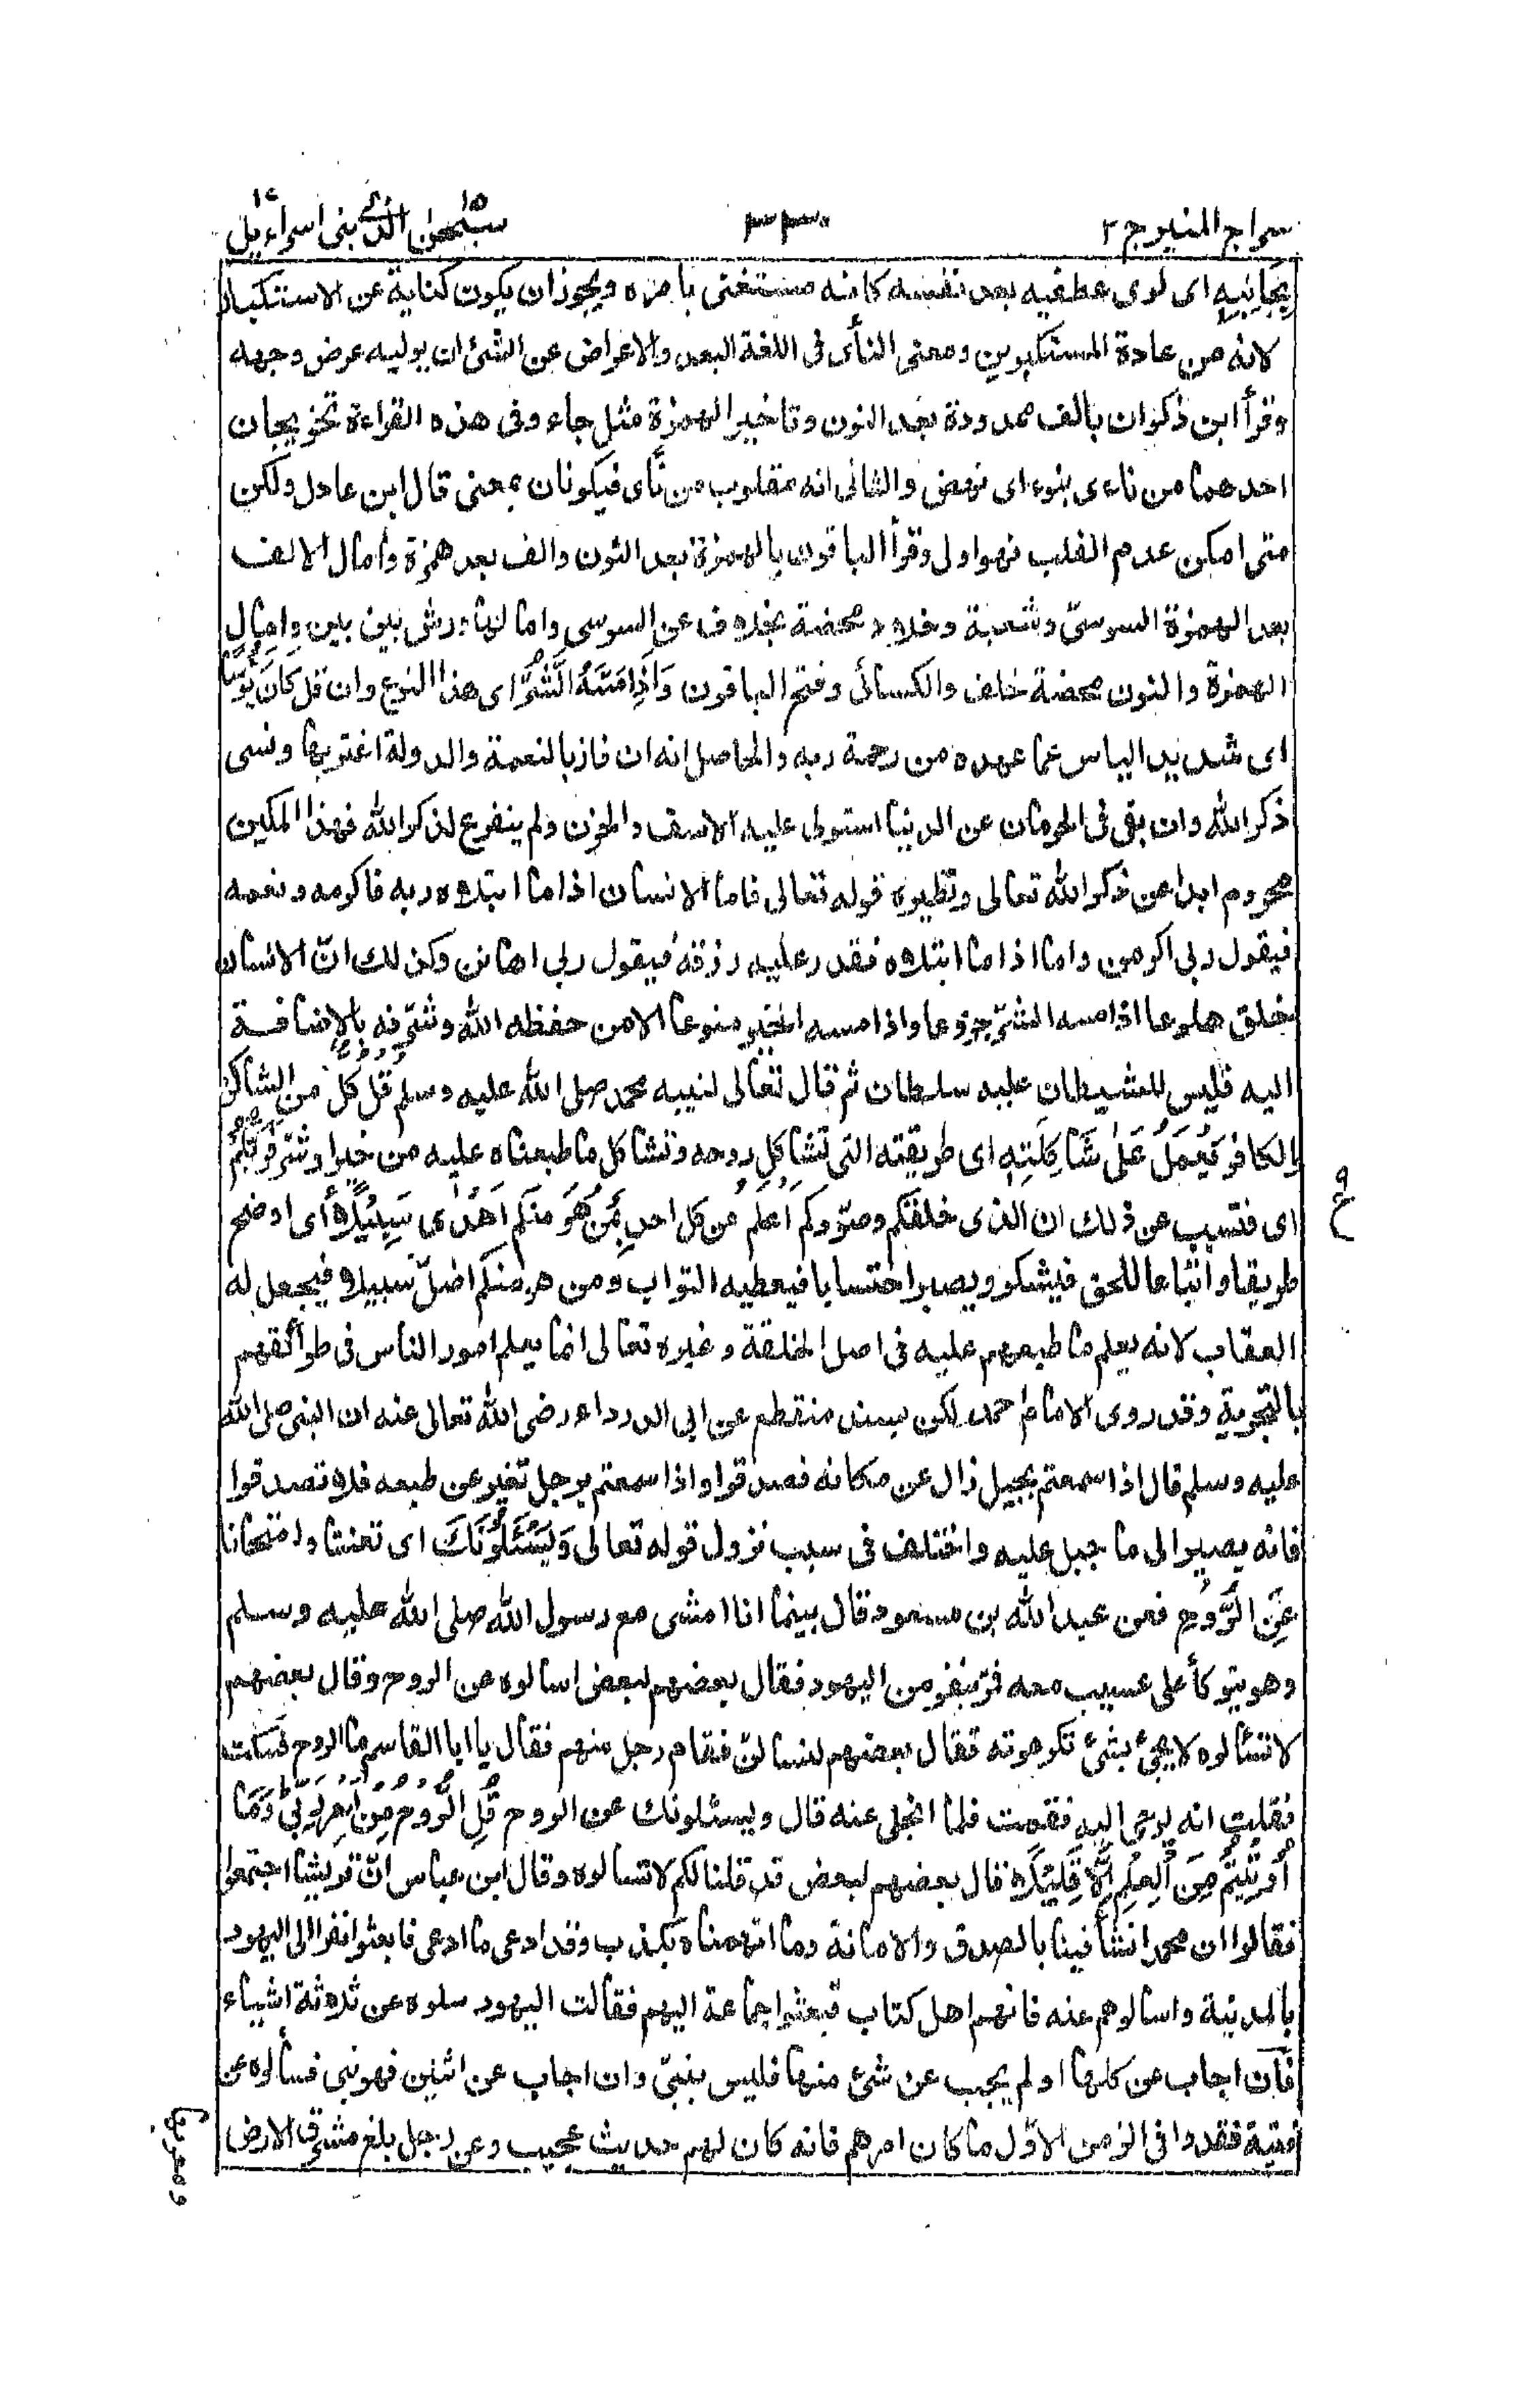 سراج المنير ج ٢
٣٣٠
سبحٰن الذی ١٥ بنی اسراءیل ١٧
بِجَانِبِهٖ ای لوی عطفيه بعد نفسه كانه مستغنی بامره ويجوز ان يكون كناية عن الاستكبار
لانه من عادة المستكبرين ومعنی النأی فی اللغة البعد والاعراض عن الشئ ان يوليه عرض وجهه
وقرأ ابن ذكوان بالف ممدودة بعد النون وتاخير الهمزة مثل جاء وفی هذه القراءة تخريجان
احدهما من ناء ی ينوء ای نهض والثانی انه مقلوب من نأی فيكونان بمعنی قال ابن عادل ولكن
متی امكن عدم القلب فهو اولی وقرأ الباقون بالهمزة بعد النون والف بعد همزة وامال الالف
بعد الهمزة السوسیّ وشعبة وخلاد محضة بخلاف عن السوسی وامالها ورش بين بين وامال
الهمزة والنون محضة خلف والكسائی وفتح الباقون وَاِذَا مَسَّهُ الشَّرُّ ای هذا النوع وان قل كَانَ يَؤُسًا
ای شديد الياس عما عهده من رحمة ربه والحاصل انه ان فاز بالنعمة والدولة اغتر بها ونسی
ذكر الله وان بقی فی الحرمان عن الدنيا استولی عليه الاسف والحزن ولم ينفرع لذكر الله فهذا المكين
محروم ابدا عن ذكر الله تعالی ونظيره قوله تعالی فاما الانسان اذا ما ابتلاه ربه فاكرمه ونعمه
فيقول ربی اكرمن واما اذا ما ابتلاه فقدر عليه رزقه فيقول ربی اهانن وكذلك انّ الانسان
خلق هلوعا اذا مسه الشرّ جزوعا واذا مسه الخير منوعا الا من حفظه الله وشرّفه بالاضافة
اليه فليس للشيطان عليه سلطان ثم قال تعالی لنبيه محمد صلی الله عليه وسلم قُلْ كُلٌّ من الشاكر
والكافر يَعْمَلُ عَلٰی شَاكِلَتِهٖ ای طريقته التی تشاكل روحه وتشاكل ما طبعناه عليه من خير او شرّ فَرَبُّكُمْ
ای فتسبب عن ذلك ان الذی خلقكم وصوّركم اَعْلَمُ من كل احد بِمَنْ هُوَ منكم اَهْدٰی سَبِيْلًا ای اوضح
طريقا واتباعا للحق فيشكر ويصبر احتسابا فيعطيه الثواب ومن هو منكم اضلّ سبيلا فيجعل له
العقاب لانه يعلم ما طبعهم عليه فی اصل الخلقة وغيره تعالی انما يعلم امور الناس فی طرائقهم
بالتجربة وقد روی الامام احمد لكن بسند منقطع عن ابی الدرداء رضی الله تعالی عنه ان النبی صلی الله
عليه وسلم قال اذا سمعتم بجبل زال عن مكانه فصدقوا واذا سمعتم برجل تغير عن طبعه فلا تصدقوا
فانه يصير الی ما جبل عليه واختلف فی سبب نزول قوله تعالی وَيَسْـَٔلُوْنَكَ ای تعنتا وامتحانا
عَنِ الرُّوْحِ فعن عبد الله بن مسعود قال بينما انا امشی مع رسول الله صلی الله عليه وسلم
وهو يتوكأ علی عسيب معه فمرّ بنفر من اليهود فقال بعضهم لبعض اسالوه عن الروح وقال بعضهم
لا تسألوه لا يجئ بشئ تكرهونه فقال بعضهم لنسالنّ فقام رجل منهم فقال يا ابا القاسم ما الروح فسكت
فقلت انه يوحی اليه فقمت فلما انجلی عنه قال ويسئلونك عن الروح قُلِ الرُّوْحُ مِنْ اَمْرِ رَبِّيْ وَمَا
اُوْتِيْتُمْ مِنَ الْعِلْمِ اِلَّا قَلِيْلًا قال بعضهم لبعض قد قلنا لكم لا تسالوه وقال ابن عباس انّ قريشا اجتمعوا
فقالوا ان محمدا نشأ فينا بالصدق والامانة وما اتهمناه بكذب وقد ادعی ما ادعی فابعثوا نفرا الی اليهود
بالمدينة واسالوهم عنه فانهم اهل كتاب فبعثوا جماعة اليهم فقالت اليهود سلوه عن ثلاثة اشياء
فان اجاب عن كلها او لم يجب عن شئ منها فليس بنبیّ وان اجاب عن اثنين فهو نبی فسألوه عن
فتية فقدوا فی الزمن الاوّل ما كان امرهم فانه كان لهم حديث عجيب وعن رجل بلغ مشرق الارض
ومغربها
٩
ع